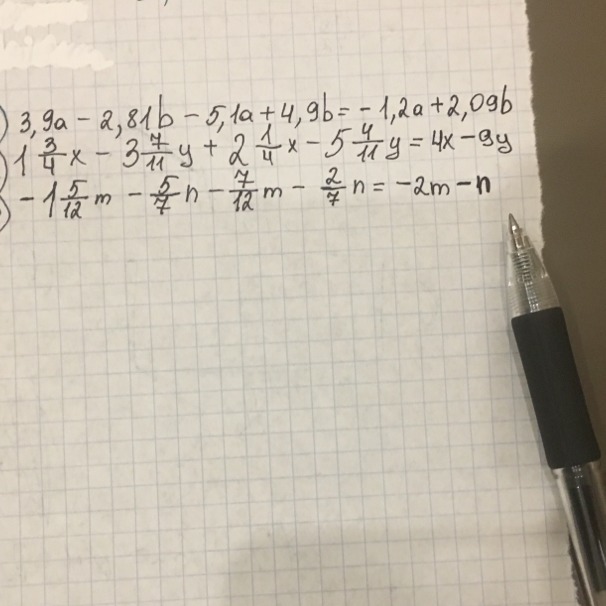 3,9a - 2,81b - 5,1a + 4,9b = - 1,2a + 2,09b
1 3/4 x - 3 7/11 y + 2 1/4 x - 5 4/11 y = 4x - 9y
- 1 5/12 m - 5/7 n - 7/12 m - 2/7 n = -2m - n